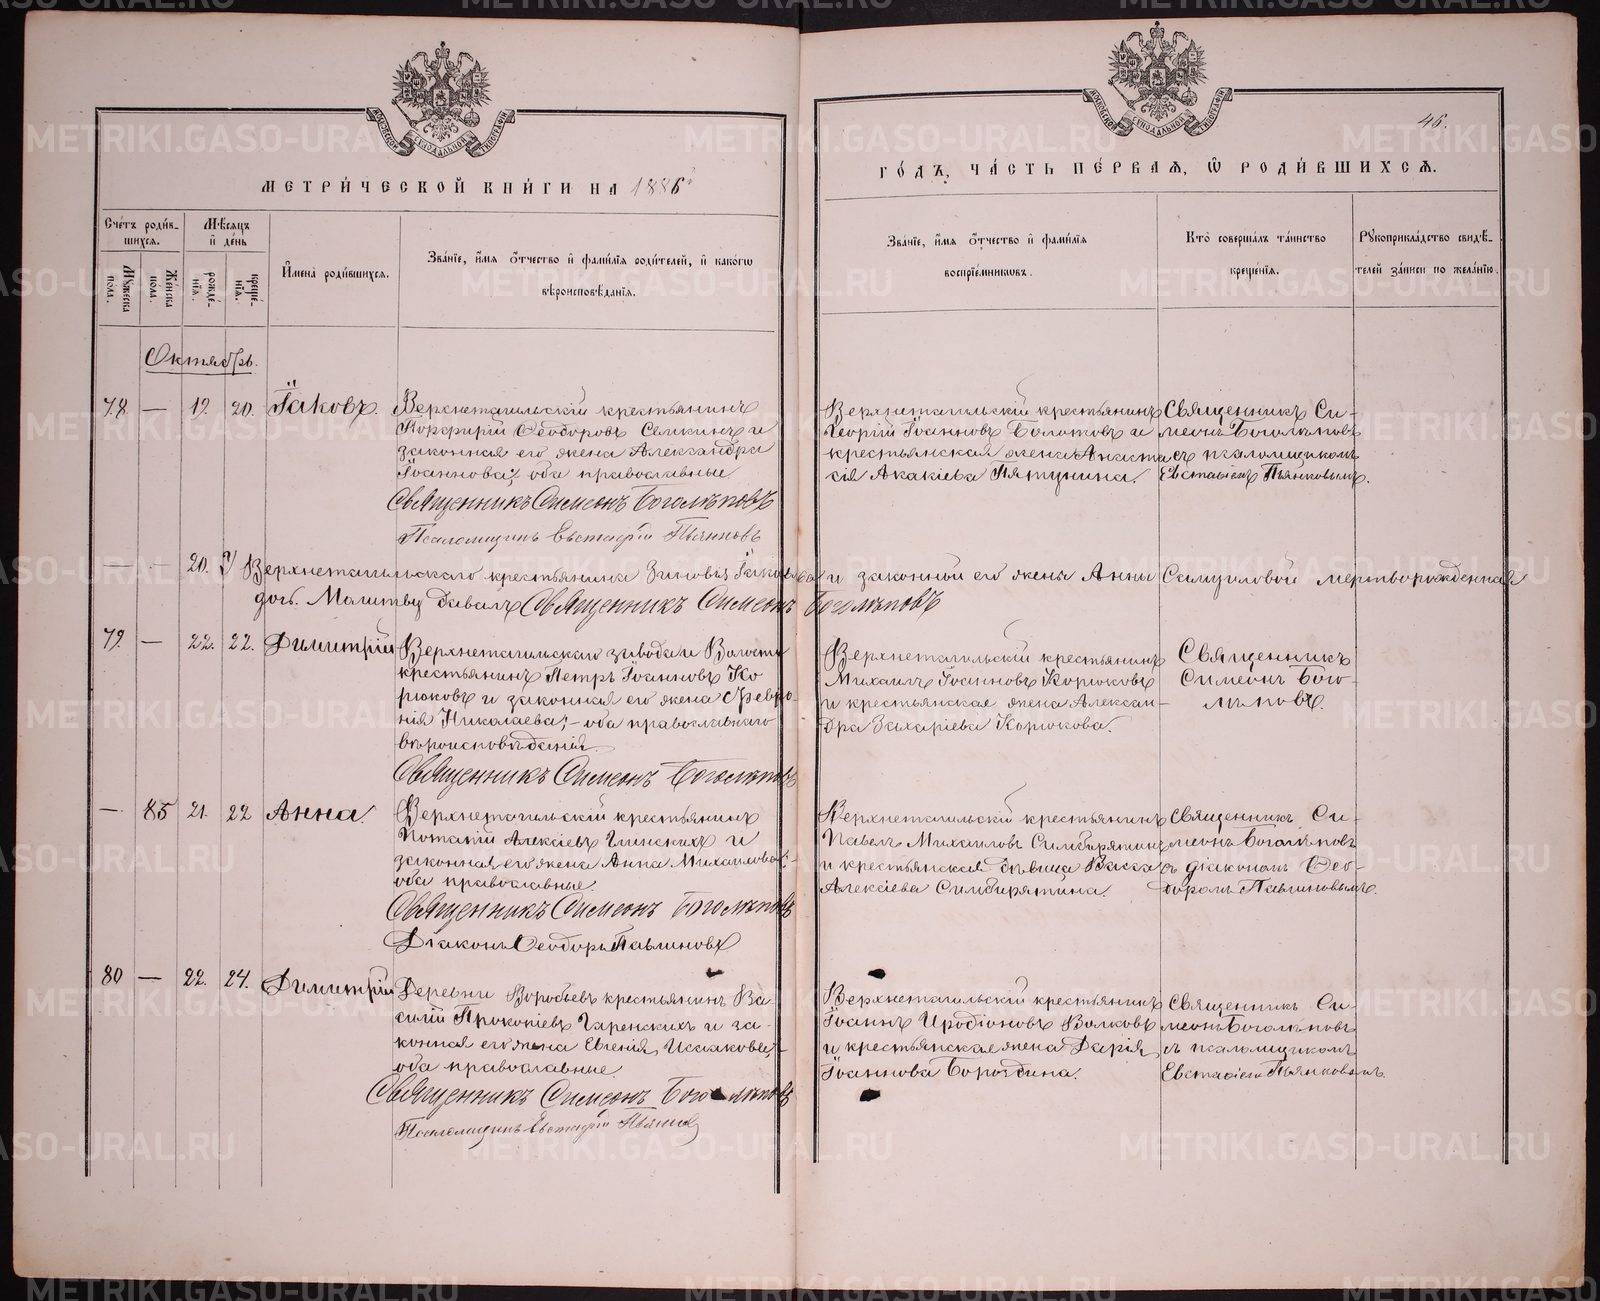 МЕТРИ́ЧЕСКОЙ КНИ́ГИ НА 1886й
ГО́ДЪ, ЧА́СТЬ ПЕ́РВАѦ, Ѽ РОДИ́ВШИХСѦ.
46.
Сче́тъ роди́в-
шихся.
Мѣ́сяцъ
и҆ де́нь
Мꙋ́жеска
пола.
Же́нска
пола.
рожде́-
нїѧ.
креще́-
нїѧ.
И҆мена̀ роди́вшихся.
Зва́нїе, и҆́мѧ о҆́тчество и҆ фами́лїѧ роди́телей, и҆ како́гѡ
вѣроисповѣ́данїѧ.
Зва́нїе, и҆́мѧ о҆́тчество и҆ фами́лїѧ
воспрїе́мниковъ.
Кто̀ соверша́лъ та́инство
креще́нїѧ.
Рꙋкоприкла́дство свидѣ́-
телей за́писи по жела́нїю.
Октябрь.
78 — 19. 20. Іаковъ.
Верхнетагильскій крестьянинъ
Порфирій Ѳеодоровъ Семкинъ и
законная его жена Александра
Іоаннова; оба православные
Священникъ Симеонъ Боголѣповъ
Псаломщикъ Евстафій Пьянковъ
Верхнетагильскій крестьянинъ
Георгій Іоанновъ Болотовъ и
крестьянская жена Анаста
сія Акакіева Пятунина.
Священникъ Си-
меонъ Боголѣповъ
съ псаломщикомъ
Евстафіемъ Пьянковымъ.
— — 20. У Верхнетагильскаго крестьянина Зиновія Іаковлева и законной его жены Анны Самуиловой мертворожденная
дочь. Молитву давалъ Священникъ Симеонъ Боголѣповъ
79. — 22. 22. Димитрій
Верхнетагильскаго завода и Волости
крестьянинъ Петръ Іоанновъ Ко
рюковъ и законная его жена Февро-
нія Николаева; – оба православнаго
вѣроисповѣданія.
Священникъ Симеонъ Боголѣповъ
Верхнетагильскій крестьянинъ
Михаилъ Іоанновъ Корюковъ
и крестьянская жена Алексан-
дра Захаріева Корюкова.
Священникъ
Симеонъ Бого-
лѣповъ.
— 85 21. 22 Анна.
Верхнетагильскій крестьянинъ
Потапій Алексіевъ Глинскихъ и
законная его жена Анна Михаилова;-
оба православные.
Священникъ Симеонъ Боголѣповъ
Діаконъ Ѳеодоръ Павлиновъ
Верхнетагильскій крестьянинъ
Павелъ Михаиловъ Симбирятинъ
и крестьянская дѣвица Васса
Алексіева Симбирятина.
Священникъ Си-
меонъ Боголѣповъ
съ діакономъ Ѳео-
доромъ Павлиновымъ.
80 — 22. 24. Димитрій
Деревни Воробьевъ крестьянинъ Ва-
силій Прокопіевъ Гаренскихъ и за-
конная его жена Евгенія Исаакова;-
оба православные.
Священникъ Симеонъ Боголѣповъ
Псаломщикъ Евстафій Пьянковъ
Верхнетагильскій крестьянинъ
Іоаннъ Иродіоновъ Волковъ
и крестьянская жена Дарія
Іоаннова Бороздина.
Священникъ Си-
меонъ Боголѣповъ
съ псаломщикомъ
Евстафіемъ Пьянковымъ.